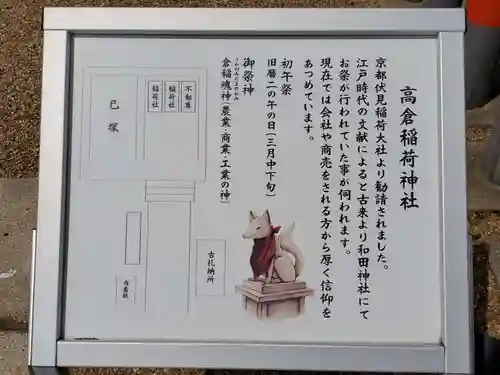 高倉稲荷神社
京都伏見稲荷大社より勧請されました。
江戸時代の文献によると古来より和田神社にて
お祭が行われていた事が伺われます。
現在では会社や商売をされる方から厚く信仰を
あつめています。
初午祭
旧暦二の午の日(三月中下旬)
御祭神
倉稲魂神(農業・商業・工業の神)
不動尊
稲荷社
稲荷社
巳塚
古札納所